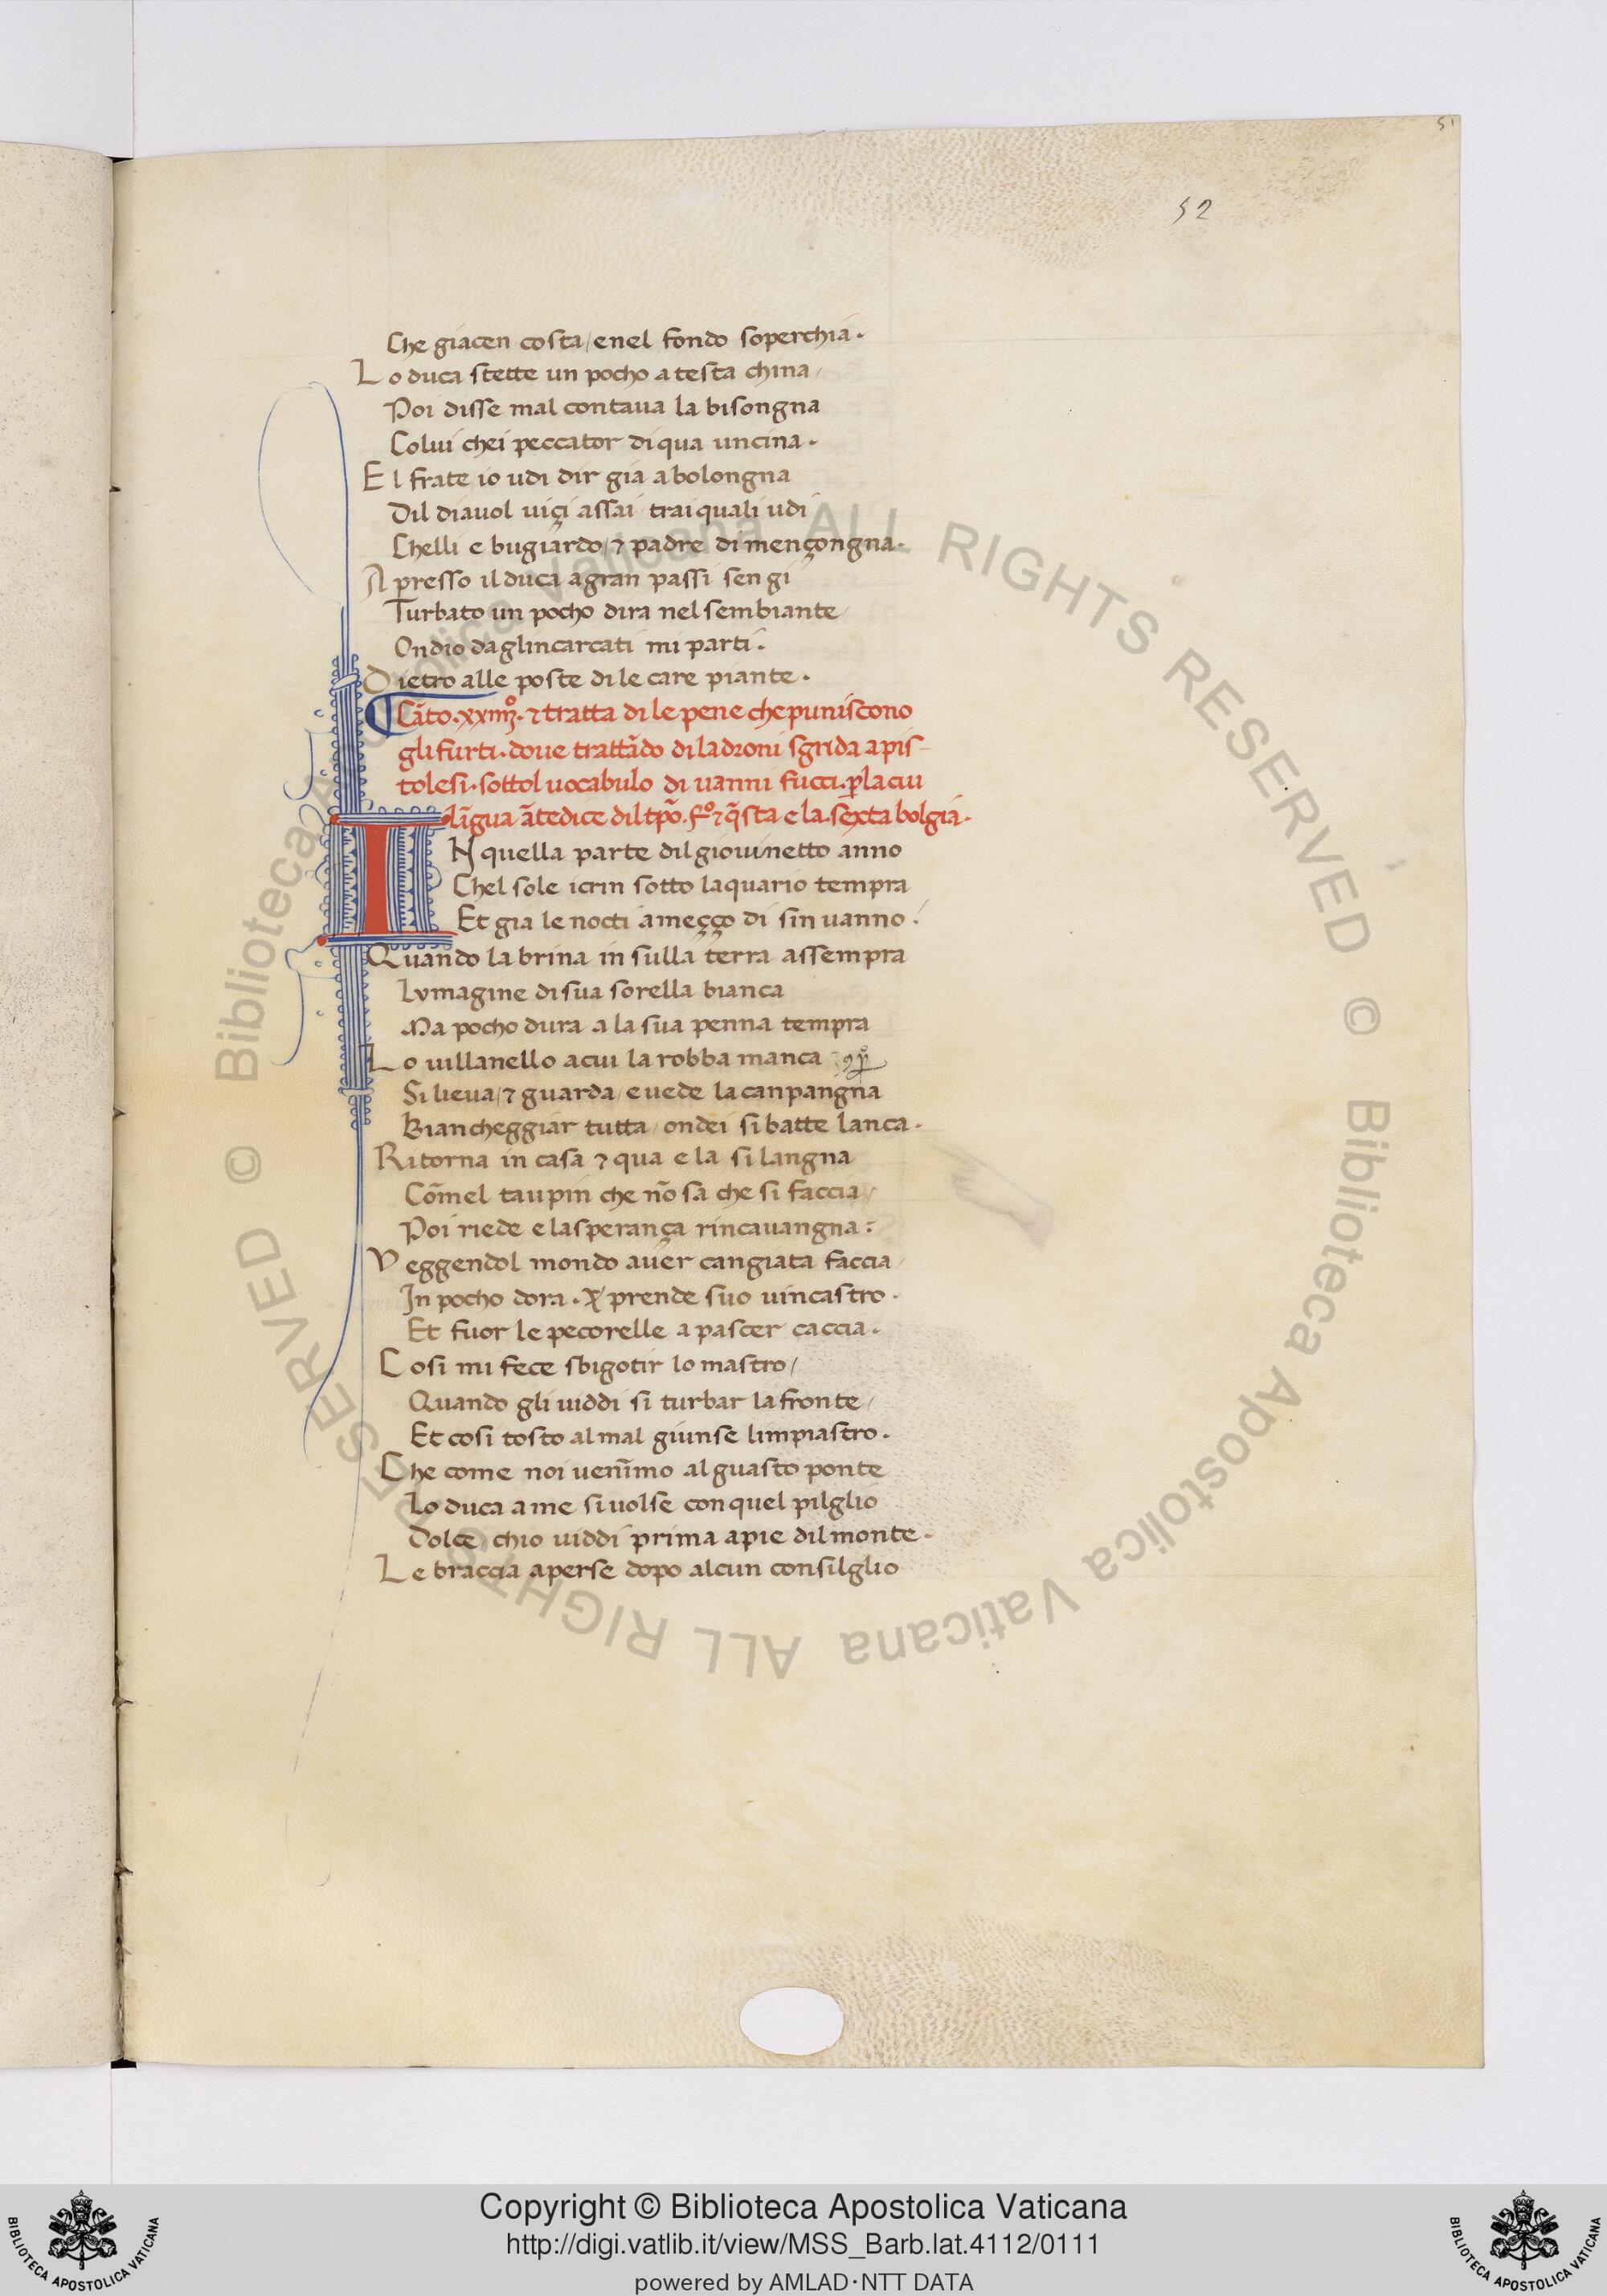 51
52
Che giacen costa/enel fondo soperchia.
Lo duca stette un pocho a testa china/
Poi disse mal contaua la bisongna
Colui chei peccator di qua uncina.
El frate/io udi dir gia a bolongna
Dil diauol uiçi assai/trai quali udi
Chelli e bugiardo/⁊ padre di mençongna.
Apresso il duca a gran passi sen gi
Turbato un pocho dira nel sembiante/
Ondio daglincarcati mi parti.
Dietro alle poste di le care piante.
Cãto.xxiiijº.⁊ tratta di le pene che puniscono
gli furti.doue trattãdo di ladroni sgrida a pis-
tolesi.sottol uocabulo di uanni fucci.ꝑ la cui
lãgua ãtedice dil tp̃o.fº ⁊ q̃sta e la.sexta bolgia.
IN quella parte dil giouinetto anno
Chel sole i crin sotto laquario tempra
Et gia le nocti a meçço di sin uanno.
Quando la brina in sulla terra assempra
Lymagine di sua sorella bianca
Ma pocho dura a la sua penna tempra
Lo uillanello a cui la robba manca
Si lieua/⁊ guarda/e uede la canpangna
Biancheggiar tutta/ondei si batte lanca.
Ritorna in casa ⁊ qua e la si langna
Cõmel taupin che nõ sa che si faccia/
Poi riede e la sperança rincauangna:
Veggendol mondo auer cangiata faccia/
In pocho dora. ⁊ prende suo uincastro.
Et fuor le pecorelle a pascer caccia.
Cosi mi fece sbigotir lo mastro/
Quando gli uiddi si turbar la fronte/
Et cosi tosto al mal giunse limpiastro.
Che come noi uenĩmo al guasto ponte
Lo duca a me si uolse con quel pilglio
Dolce chio uiddi prima a pie dil monte.
Le braccia aperse dopo alcun consilglio
© Biblioteca Apostolica Vaticana ALL RIGHTS RESERVED © Biblioteca Apostolica Vaticana ALL RIGHTS RESERVED
Copyright © Biblioteca Apostolica Vaticana
http://digi.vatlib.it/view/MSS_Barb.lat.4112/0111
powered by AMLAD·NTT DATA
BIBLIOTECA APOSTOLICA VATICANA
BIBLIOTECA APOSTOLICA VATICANA